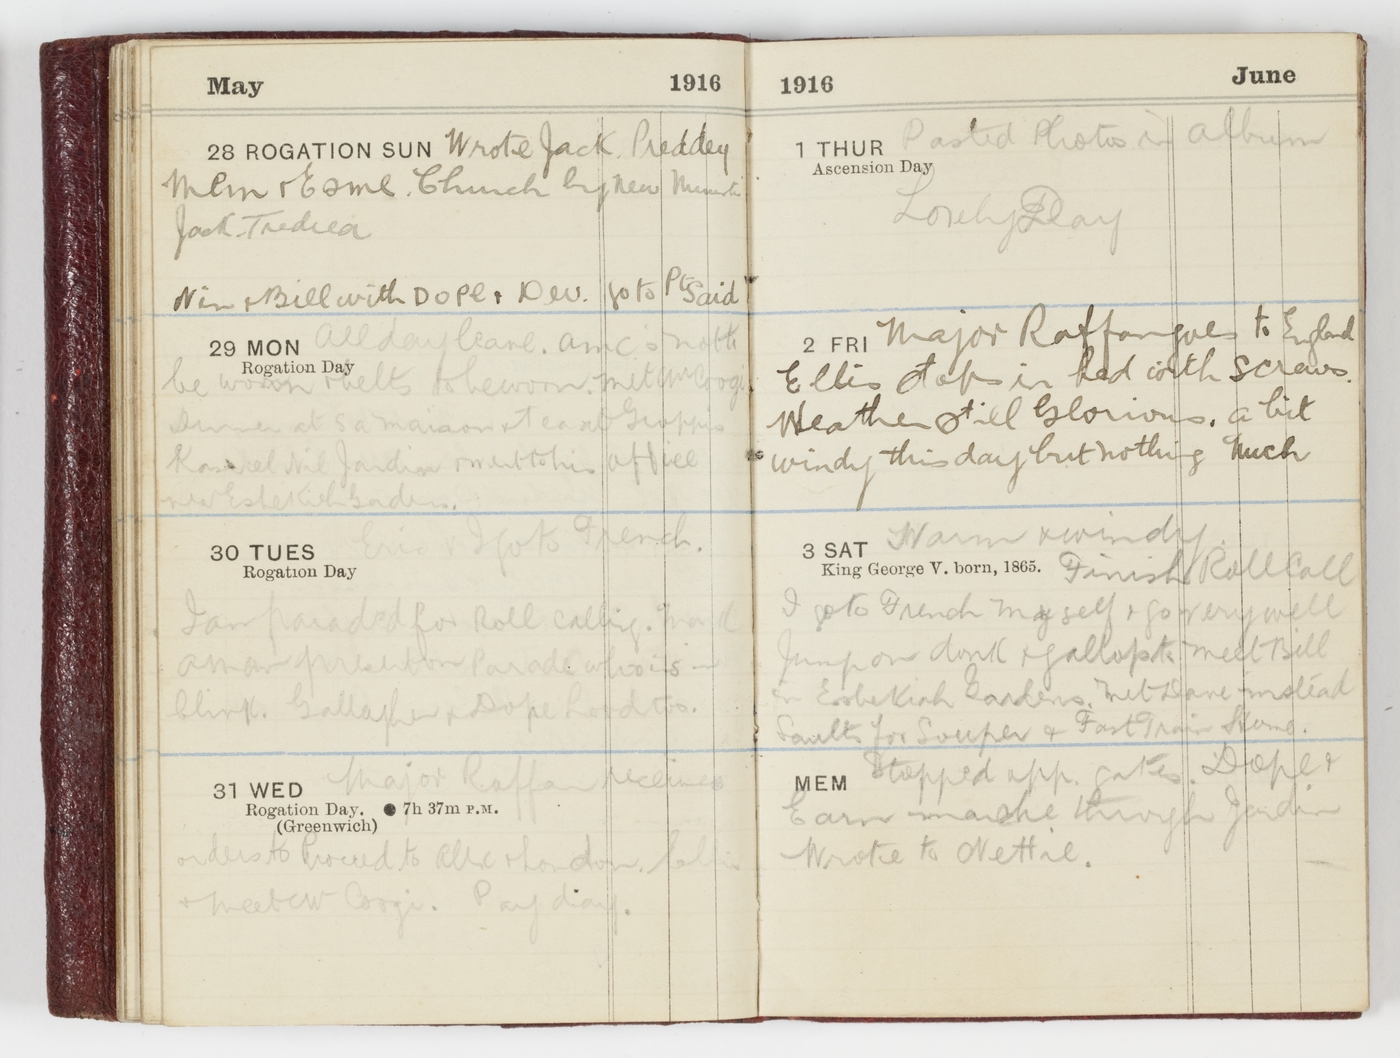 May 1916
28 ROGATION SUN Wrote Jack Preddey
Mem & Esme. Church by new
Jack
Nin & Bill with Dope & Dev. go to Pt Said
29 MON All day leave. AMC's not to
Rogation Day
be worn & belts to be worn. met
Dinner at Sa Maison & tea at Groppis
Jardin & went to his office
Gardens.
30 TUES Eric & I go to French.
Rogation Day
I am paraded for Roll calling. Mark
a man present on Parade who is in
Clink. Gallagher & Dope too.
31 WED Major Raffan receives
Rogation Day. ● 7h 37m P.M.
(Greenwich)
orders to proceed to Alex & London.
& meet CW Coogi. Pay diary.
1916 June
1 THUR Pasted Photos in album
Ascension Day
Lovely Day
2 FRI Major Raffan goes to England
Ellis stops in bed with screws.
Weather still Glorious. a bit
windy this day but nothing much
3 SAT Warm & windy.
King George V. born, 1865. Finish Roll Call
I go to French myself & go very well
Jump on donk & gallop to meet Bill
in Esbekiah Gardens. Met Dave instead
Saults for Souper & Fast Train Home.
MEM Stopped opp. gates. Dope &
Earn through Jardin
Wrote to Nettie.